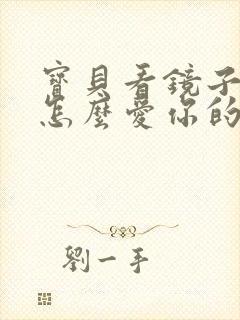 寶貝看鏡子
怎麼愛你的
劉一手